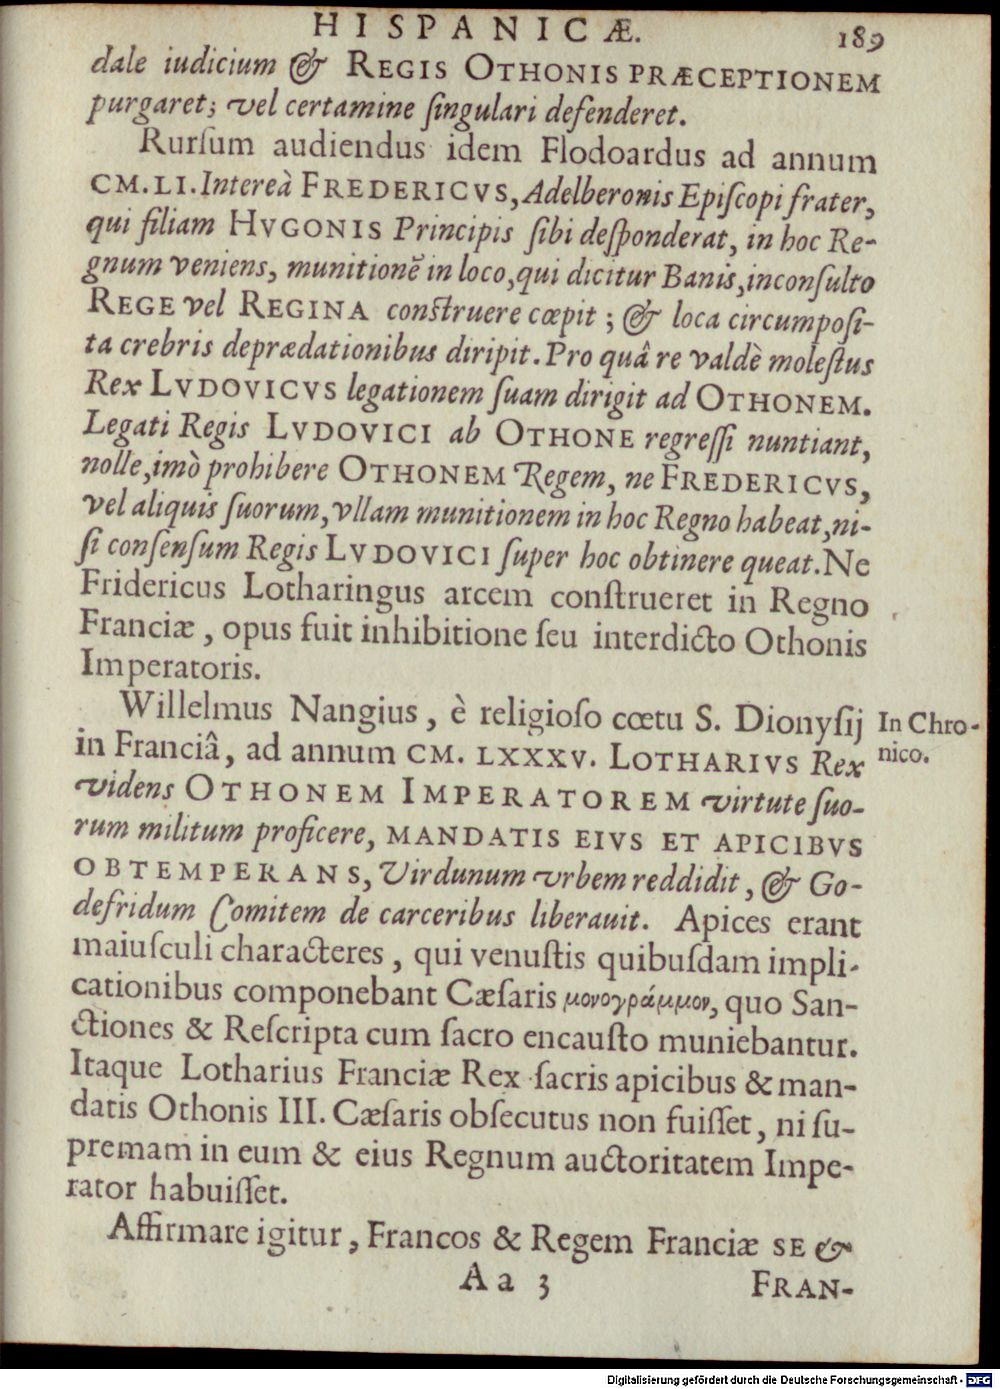 HISPANICÆ. 189
dale iudicium & REGIS OTHONIS PRÆCEPTIONEM
purgaret; vel certamine ſingulari defenderet.
Rurſum audiendus idem Flodoardus ad annum
CM.LI. Intereà FREDERICVS, Adelberonis Epiſcopi frater,
qui filiam HVGONIS Principis ſibi deſponderat, in hoc Re-
gnum veniens, munitionē in loco, qui dicitur Banis, inconſulto
REGE vel REGINA conſtruere cœpit; & loca circumpoſi-
ta crebris deprædationibus diripit. Pro quâ re valdè moleſtus
Rex LVDOVICVS legationem ſuam dirigit ad OTHONEM.
Legati Regis LVDOVICI ab OTHONE regreſſi nuntiant,
nolle, imò prohibere OTHONEM Regem, ne FREDERICVS,
vel aliquis ſuorum, vllam munitionem in hoc Regno habeat, ni-
ſi conſenſum Regis LVDOVICI ſuper hoc obtinere queat. Ne
Fridericus Lotharingus arcem conſtrueret in Regno
Franciæ, opus fuit inhibitione ſeu interdicto Othonis
Imperatoris.
Willelmus Nangius, è religioſo cœtu S. Dionyſij
In Chro-
nico.
in Franciâ, ad annum CM. LXXXV. LOTHARIVS Rex
videns OTHONEM IMPERATOREM virtute ſuo-
rum militum proficere, MANDATIS EIVS ET APICIBVS
OBTEMPERANS, Virdunum vrbem reddidit, & Go-
defridum Comitem de carceribus liberauit. Apices erant
maiuſculi characteres, qui venuſtis quibuſdam impli-
cationibus componebant Cæſaris μονογράμμον, quo San-
ctiones & Reſcripta cum ſacro encauſto muniebantur.
Itaque Lotharius Franciæ Rex ſacris apicibus & man-
datis Othonis III. Cæſaris obſecutus non fuiſſet, ni ſu-
premam in eum & eius Regnum auctoritatem Impe-
rator habuiſſet.
Affirmare igitur, Francos & Regem Franciæ SE &
Aa 3 FRAN-
Digitalisierung gefördert durch die Deutsche Forschungsgemeinschaft - DFG